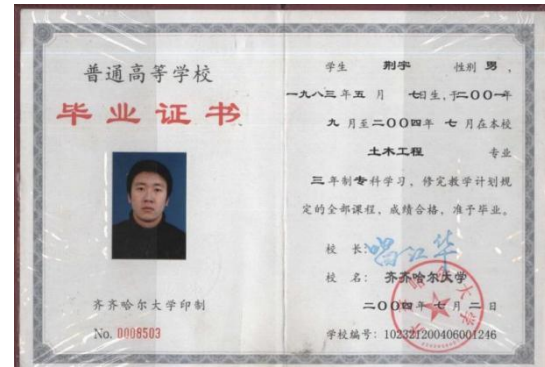 普通高等学校
毕业证书
齐齐哈尔大学印制
No. 0008503
学生 荆宇 性别 男,
一九八三年五月 七日生,于二〇〇一年
九月至二〇〇四年七月在本校
土木工程 专业
三年制专科学习,修完教学计划规
定的全部课程,成绩合格,准予毕业。
校长:
校名:齐齐哈尔大学
二〇〇四年七月二日
学校编号:102321200406001246